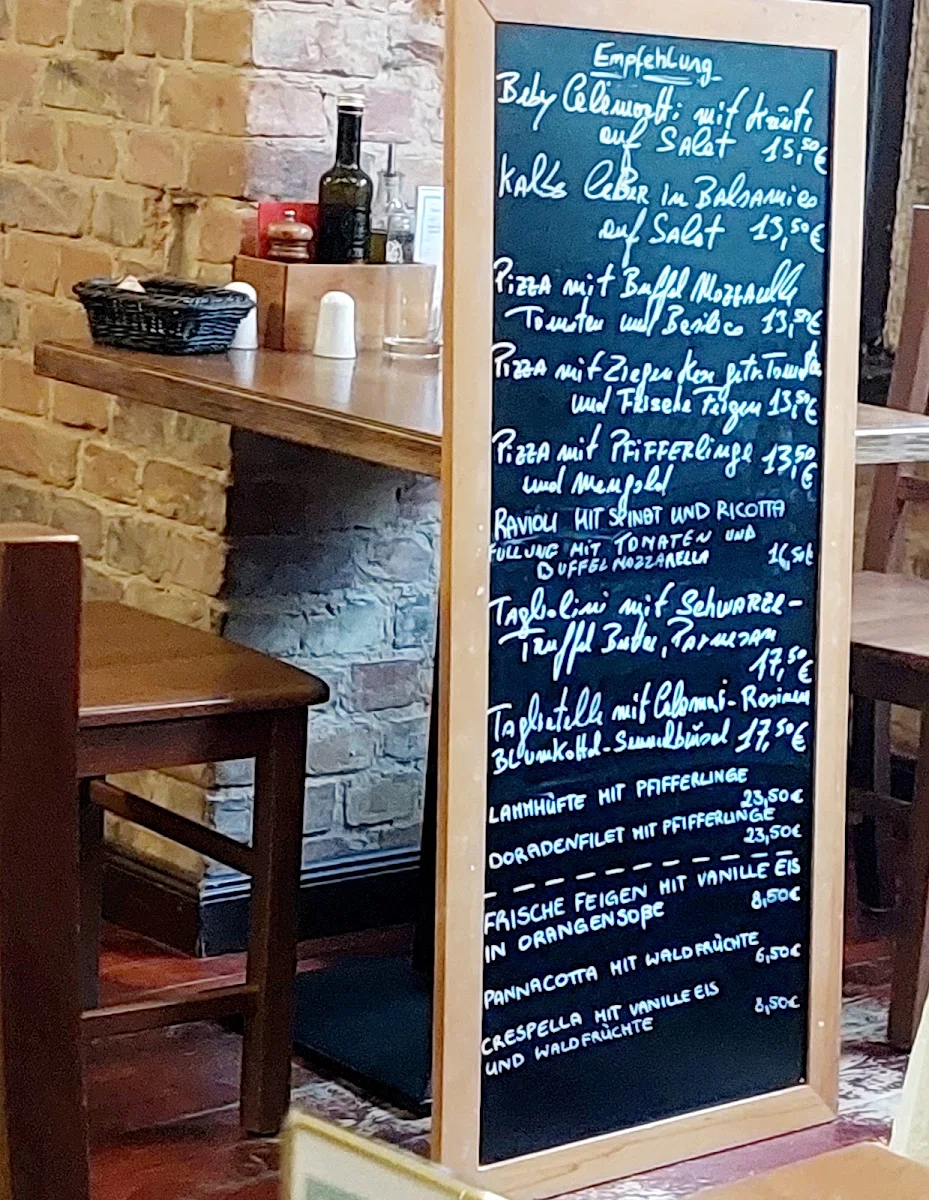 Empfehlung
Baby Calamaretti mit
auf Salat 15,50€
Kalbs leBer in Balsamico
auf Salat 13,50€
Pizza mit Büffel Mozzarella
Tomaten und Basilico 13,50€
Pizza mit Ziegen Kese getr. Tomaten
und Frische Feigen 13,50€
Pizza mit Pfifferlinge 13,50
und Mangold €
RAVIOLI MIT SPINAT UND RICOTTA
FÜLLUNG MIT TOMATEN UND
BÜFFELMOZZARELLA 16,50€
Tagliolini mit Schwarze-
Trüffel Butter, Parmesan
17,50€
Tagliatelle mit Calamari-Rosinen
Blumkohl-Semmelbrösel 17,50€
LAMMHÜFTE MIT PFIFFERLINGE
23,50€
DORADENFILET MIT PFIFFERLINGE
23,50€
FRISCHE FEIGEN MIT VANILLE EIS
IN ORANGENSOßE 8,50€
PANNACOTTA MIT WALDFRÜCHTE
6,50€
CRESPELLA MIT VANILLE EIS
UND WALDFRÜCHTE 8,50€